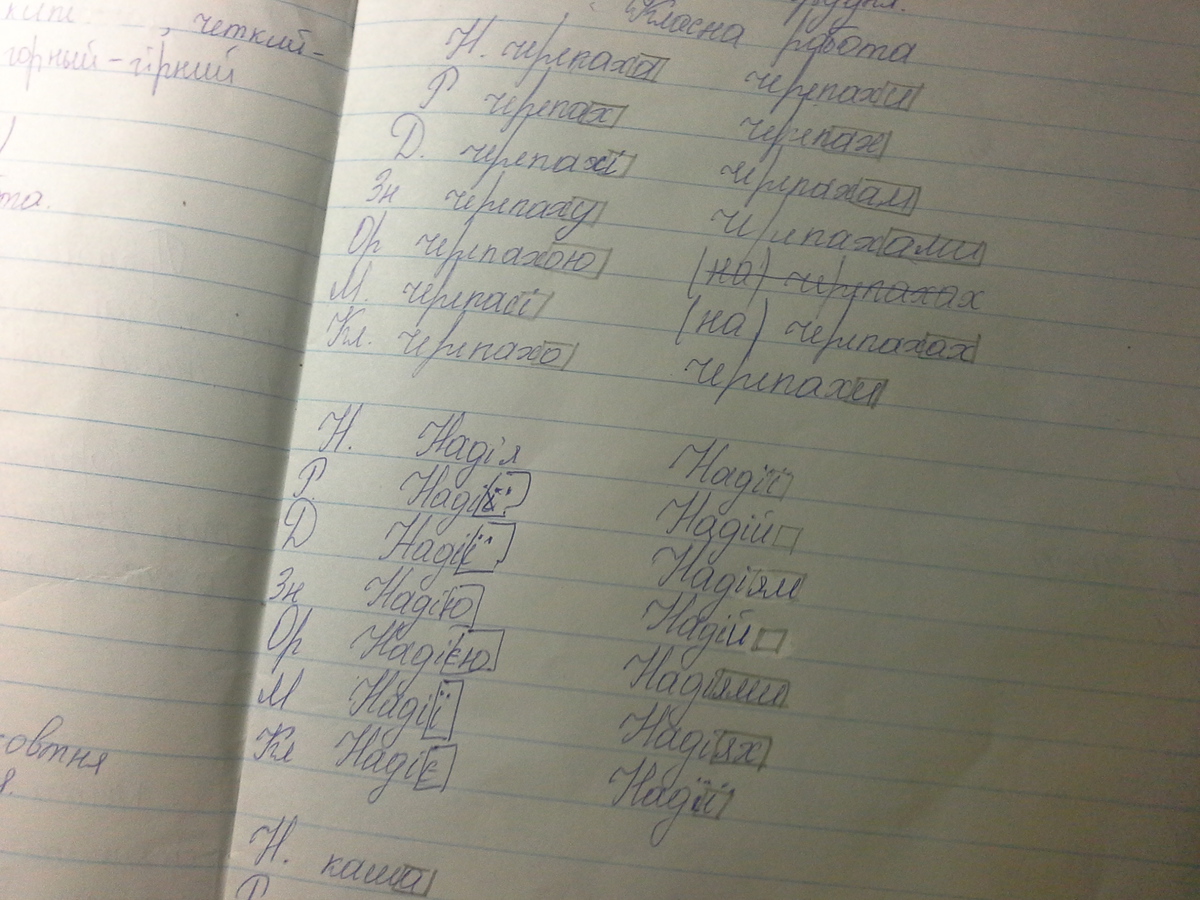 четкий-
горный - гірний
та.
овтня
Класна робота
Н. черепаха черепахи
Р черепах черепах
Д. черепахі черепахам
Зн черепаху черепахами
Ор черепахою (на) черепахах
М. черепасі (на) черепахах
Кл. черепахо черепахи
Н. Надія Надії
Р. Надії Надій
Д Надії Надіям
Зн Надію Надій
Ор Надією Надіями
М Надії Надіях
Кл Надіє Надії
Н. каша
Р